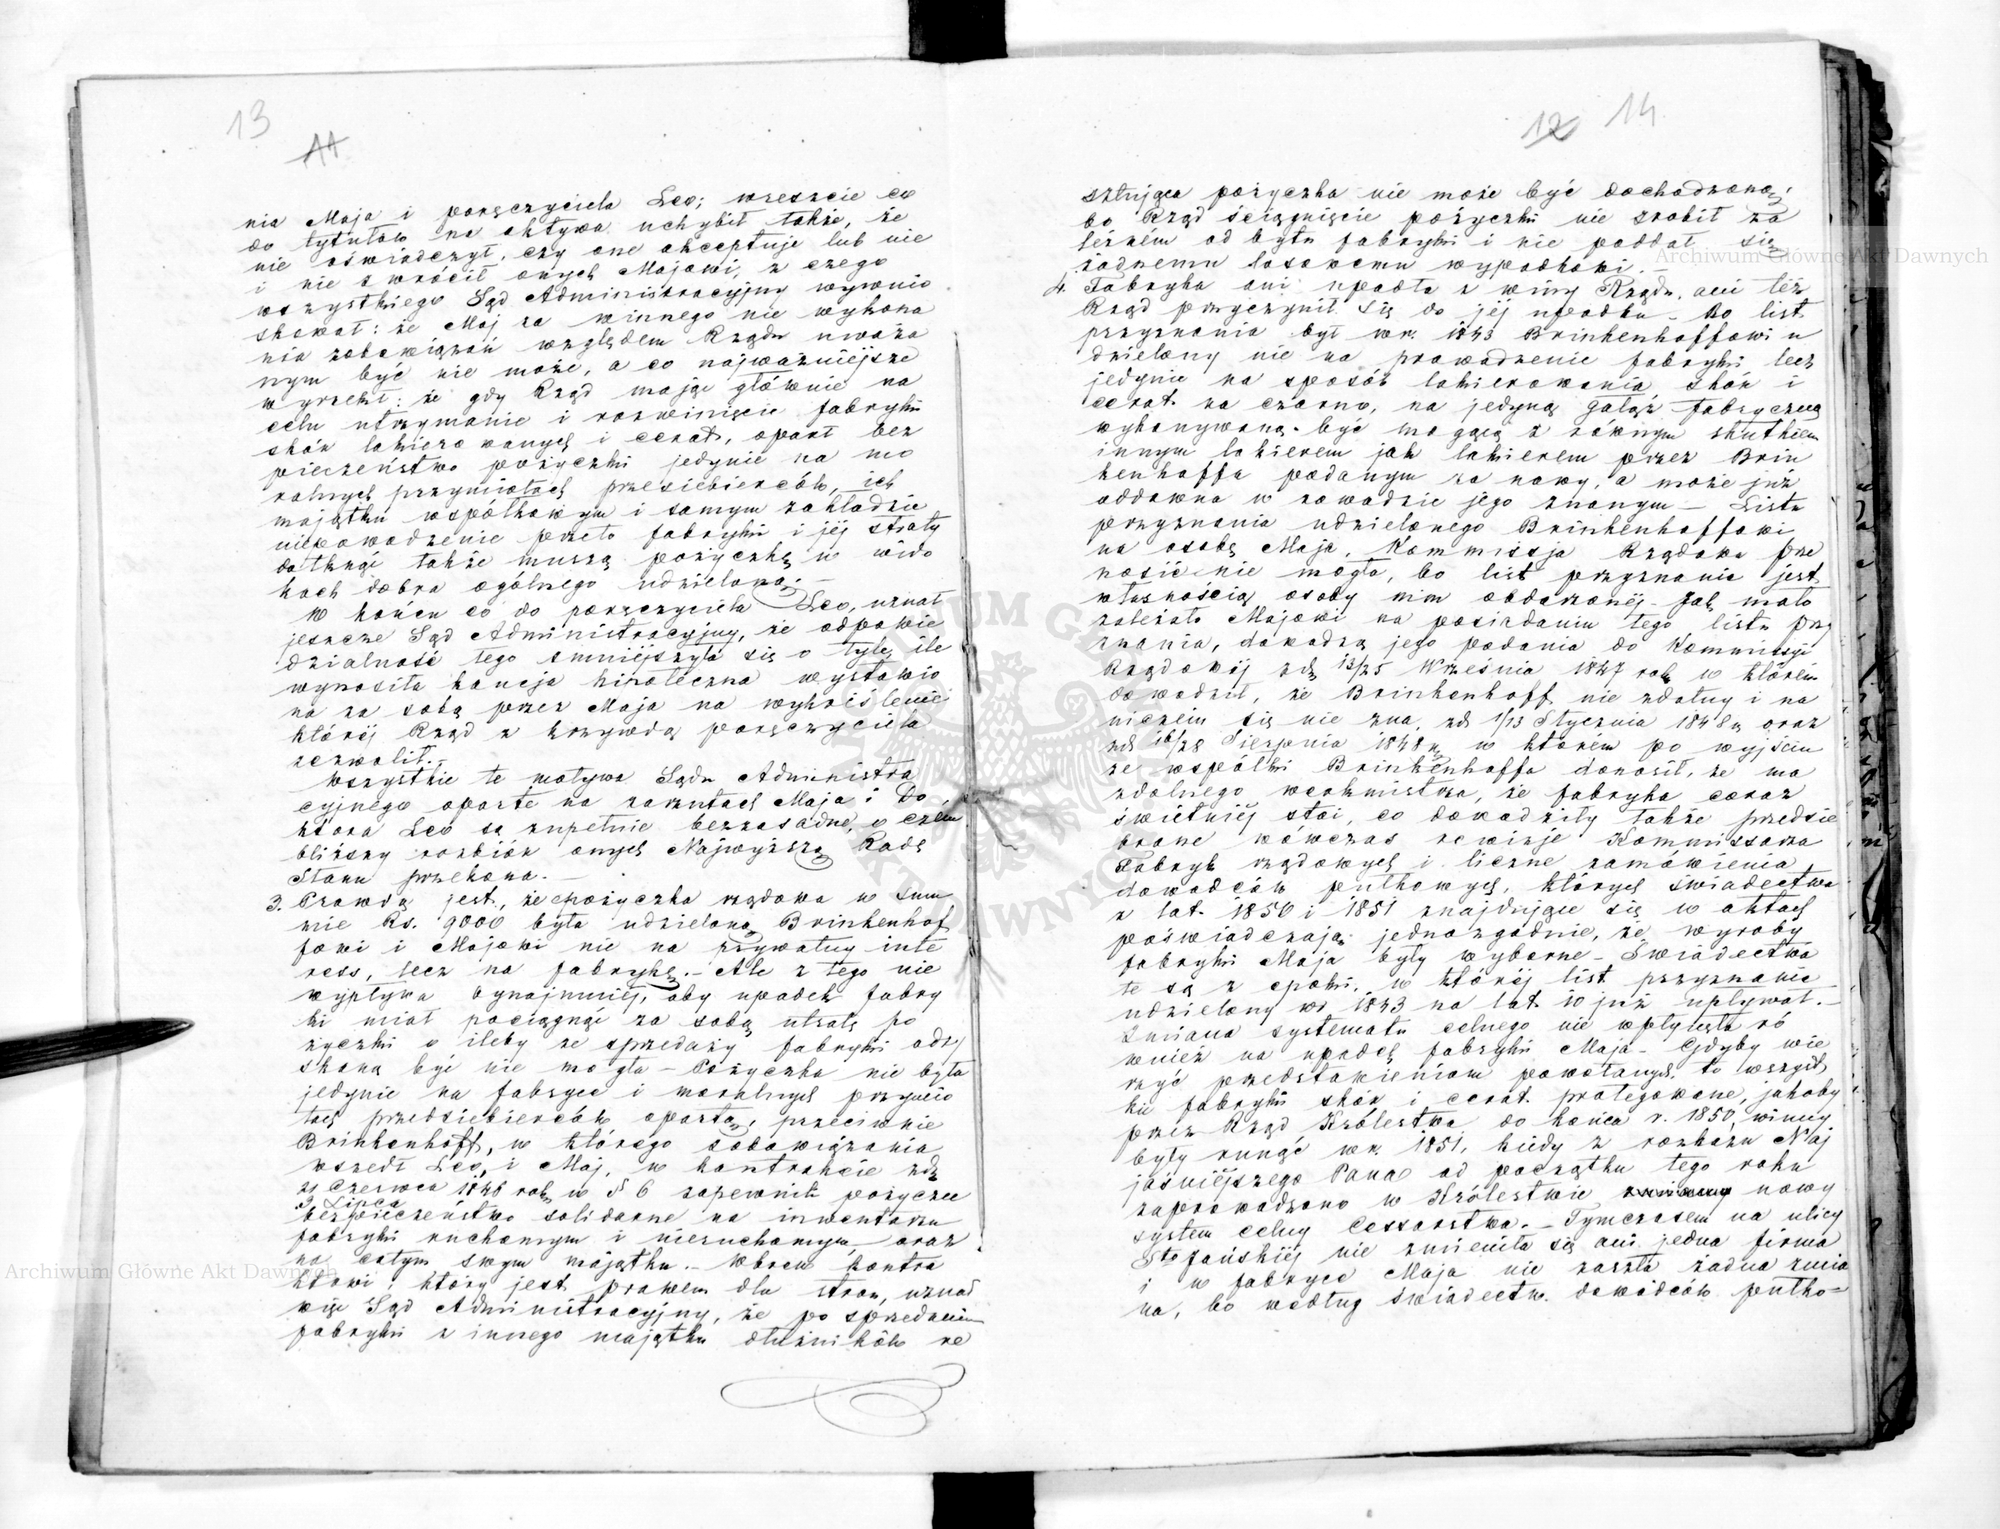 13
11
nia Maja i poręczyciela Leo; wreszcie co
do tytułów na aktywa uchybił także, że
nie oświadczył, czy one akceptuje lub nie
i nie zwrócił onych Majowi, z czego
wszystkiego Sąd Administracyjny wywnio
skował: że Maj za winnego nie wykona
nia zobowiązań względem Rządu uważa
nym być nie może, a co najważniejsze
wyrzekł: że gdy Rząd mając głównie na
celu utrzymanie i rozwinięcie fabryki
skór lakierowanych i cerat, oparł bez
pieczeństwo pożyczki jedynie na mo
ralnych przymiotach przesiebierców, ich
majątku wspólkowym i samym zakładzie
niepowodzenie przeto fabryki i jéj straty
dotknąć także muszą pożyczkę w wido
kach dobra ogólnego udzieloną. —
W końcu co do poręczyciela Leo, uznał
jeszcze Sąd Administracyjny, że odpowie
dzialność tego zmniejszyła się o tyle, ile
wynosiła kaucja hipoteczna wystawio
na za sobą przez Maja na wykreślenie
któréj Rząd z krzywdą poręczyciela
zezwolił. —
Wszystkie te motywa Sądu Administra
cyjnego oparte na zarzutach Maja i Do,
ktora Leo są zupełnie bezzasadne, o czem
bliższy rozbiór onych Najwyższą Radę
Stanu przekona. —
3. Prawdą jest, że pożyczka rządowa w sum
mie Rs. 9000 była udzieloną Brinkenhof
fowi i Majowi nie na prywatny inte
ress, lecz na fabrykę. — Ale z tego nie
wypływa bynajmniéj, aby upadek fabry
ki miał pociągnąć za sobą utratę po
życzki o ileby ze sprzedaży fabryki odzy
skaną być nie mogła — Pożyczka nie była
jedynie na fabryce i moralnych przymio
tach przedsiebierców opartą, przeciwnie
Brinkenhoff, w którego zobowiązania
wszedł Leo, i Maj, w kontrakcie zdz
21 Czerwca 1846 roku w § 6 zapewnili pożyczce
3 Lipca
bezpieczeństwo solidarne na inwentarzu
fabryki ruchomym i nieruchomym, oraz
na całym swym majątku. — Wbrew kontra
ktowi, który jest prawem dla stron, uznał
więc Sąd Administracyjny, że po sprzedaniu
fabryki z innego majątku dłużników re
12 14
sztująca pożyczka nie może być dochodzoną,
bo Rząd ściągnięcie pożyczki nie zrobił za
leżném od bytu fabryki i nie poddał się
żadnemu losowemu wypadkowi. —
4. Fabryka ani upadła z winy Rządu, ani téż
Rząd przyczynił się do jéj upadku — Bo list
przyznania był w r. 1843 Brinkenhoffowi u
dzielony nie na prowadzenie fabryki lecz
jedynie na sposób lakierowania skór i
cerat na czarno, na jedyną gałąź fabryczną
wykonywaną być mogącą z równym skutkiem
innym lakierem jak lakierem przez Brin
kenhoffa podanym za nowy, a może już
oddawna w zawodzie jego znanym — Listu
przyznania udzielonego Brinkenhoffowi
na osobę Maja, Kommissja Rządowa prze
nosić nie mogła, bo list przyznania jest
własnością osoby nim obdarzonéj. Jak mało
zależało Majowi na posiadaniu tego listu przy
znania, dowodzą jego podania do Kommissji
Rządowéj zdz 13/25 Września 1847 roku w którém
dowodził, że Brinkenhoff nie zdolny i na
niczém się nie zna, zdz 1/13 Stycznia 1848 r. oraz
zdz 16/28 Sierpnia 1848 r. w którém po wyjściu
ze wspólki Brinkenhoffa donosił, że ma
zdolnego werkmistrza, że fabryka coraz
świetniéj stoi, co dowodziły także przedsię
brane wówczas rewizje Kommissarza
Fabryk rządowych i liczne zamówienia
dowodców pułkowych, których świadectwa
z lat 1850 i 1851 znajdujące się w aktach
poświadczają jednozgodnie, że wyroby
fabryki Maja były wyborne — Świadectwa
te są z epoki, w któréj list przyznania
udzielony w r. 1843 na lat 10 już upływał. —
Zmiana systematu celnego nie wpłynęła ró
wnież na upadek fabryki Maja — Gdyby wie
rzyć przedstawieniom powołanych, to wszyst
kie fabryki skór i cerat protegowane, jakoby
przez Rząd Królestwa do końca r. 1850, winny
były runąć w r. 1851, kiedy z rozkazu Naj
jaśniejszego Pana od początku tego roku
zaprowadzono w Królestwie nowy
system celny Cessarstwa. — Tymczasem na ulicy
Sto Jańskiéj nie zmieniła się ani jedna firma
i w fabryce Maja nie zaszła żadna zmia
na, bo według świadectw dowodców pułko=
Archiwum Główne Akt Dawnych
Archiwum Główne Akt Dawnych